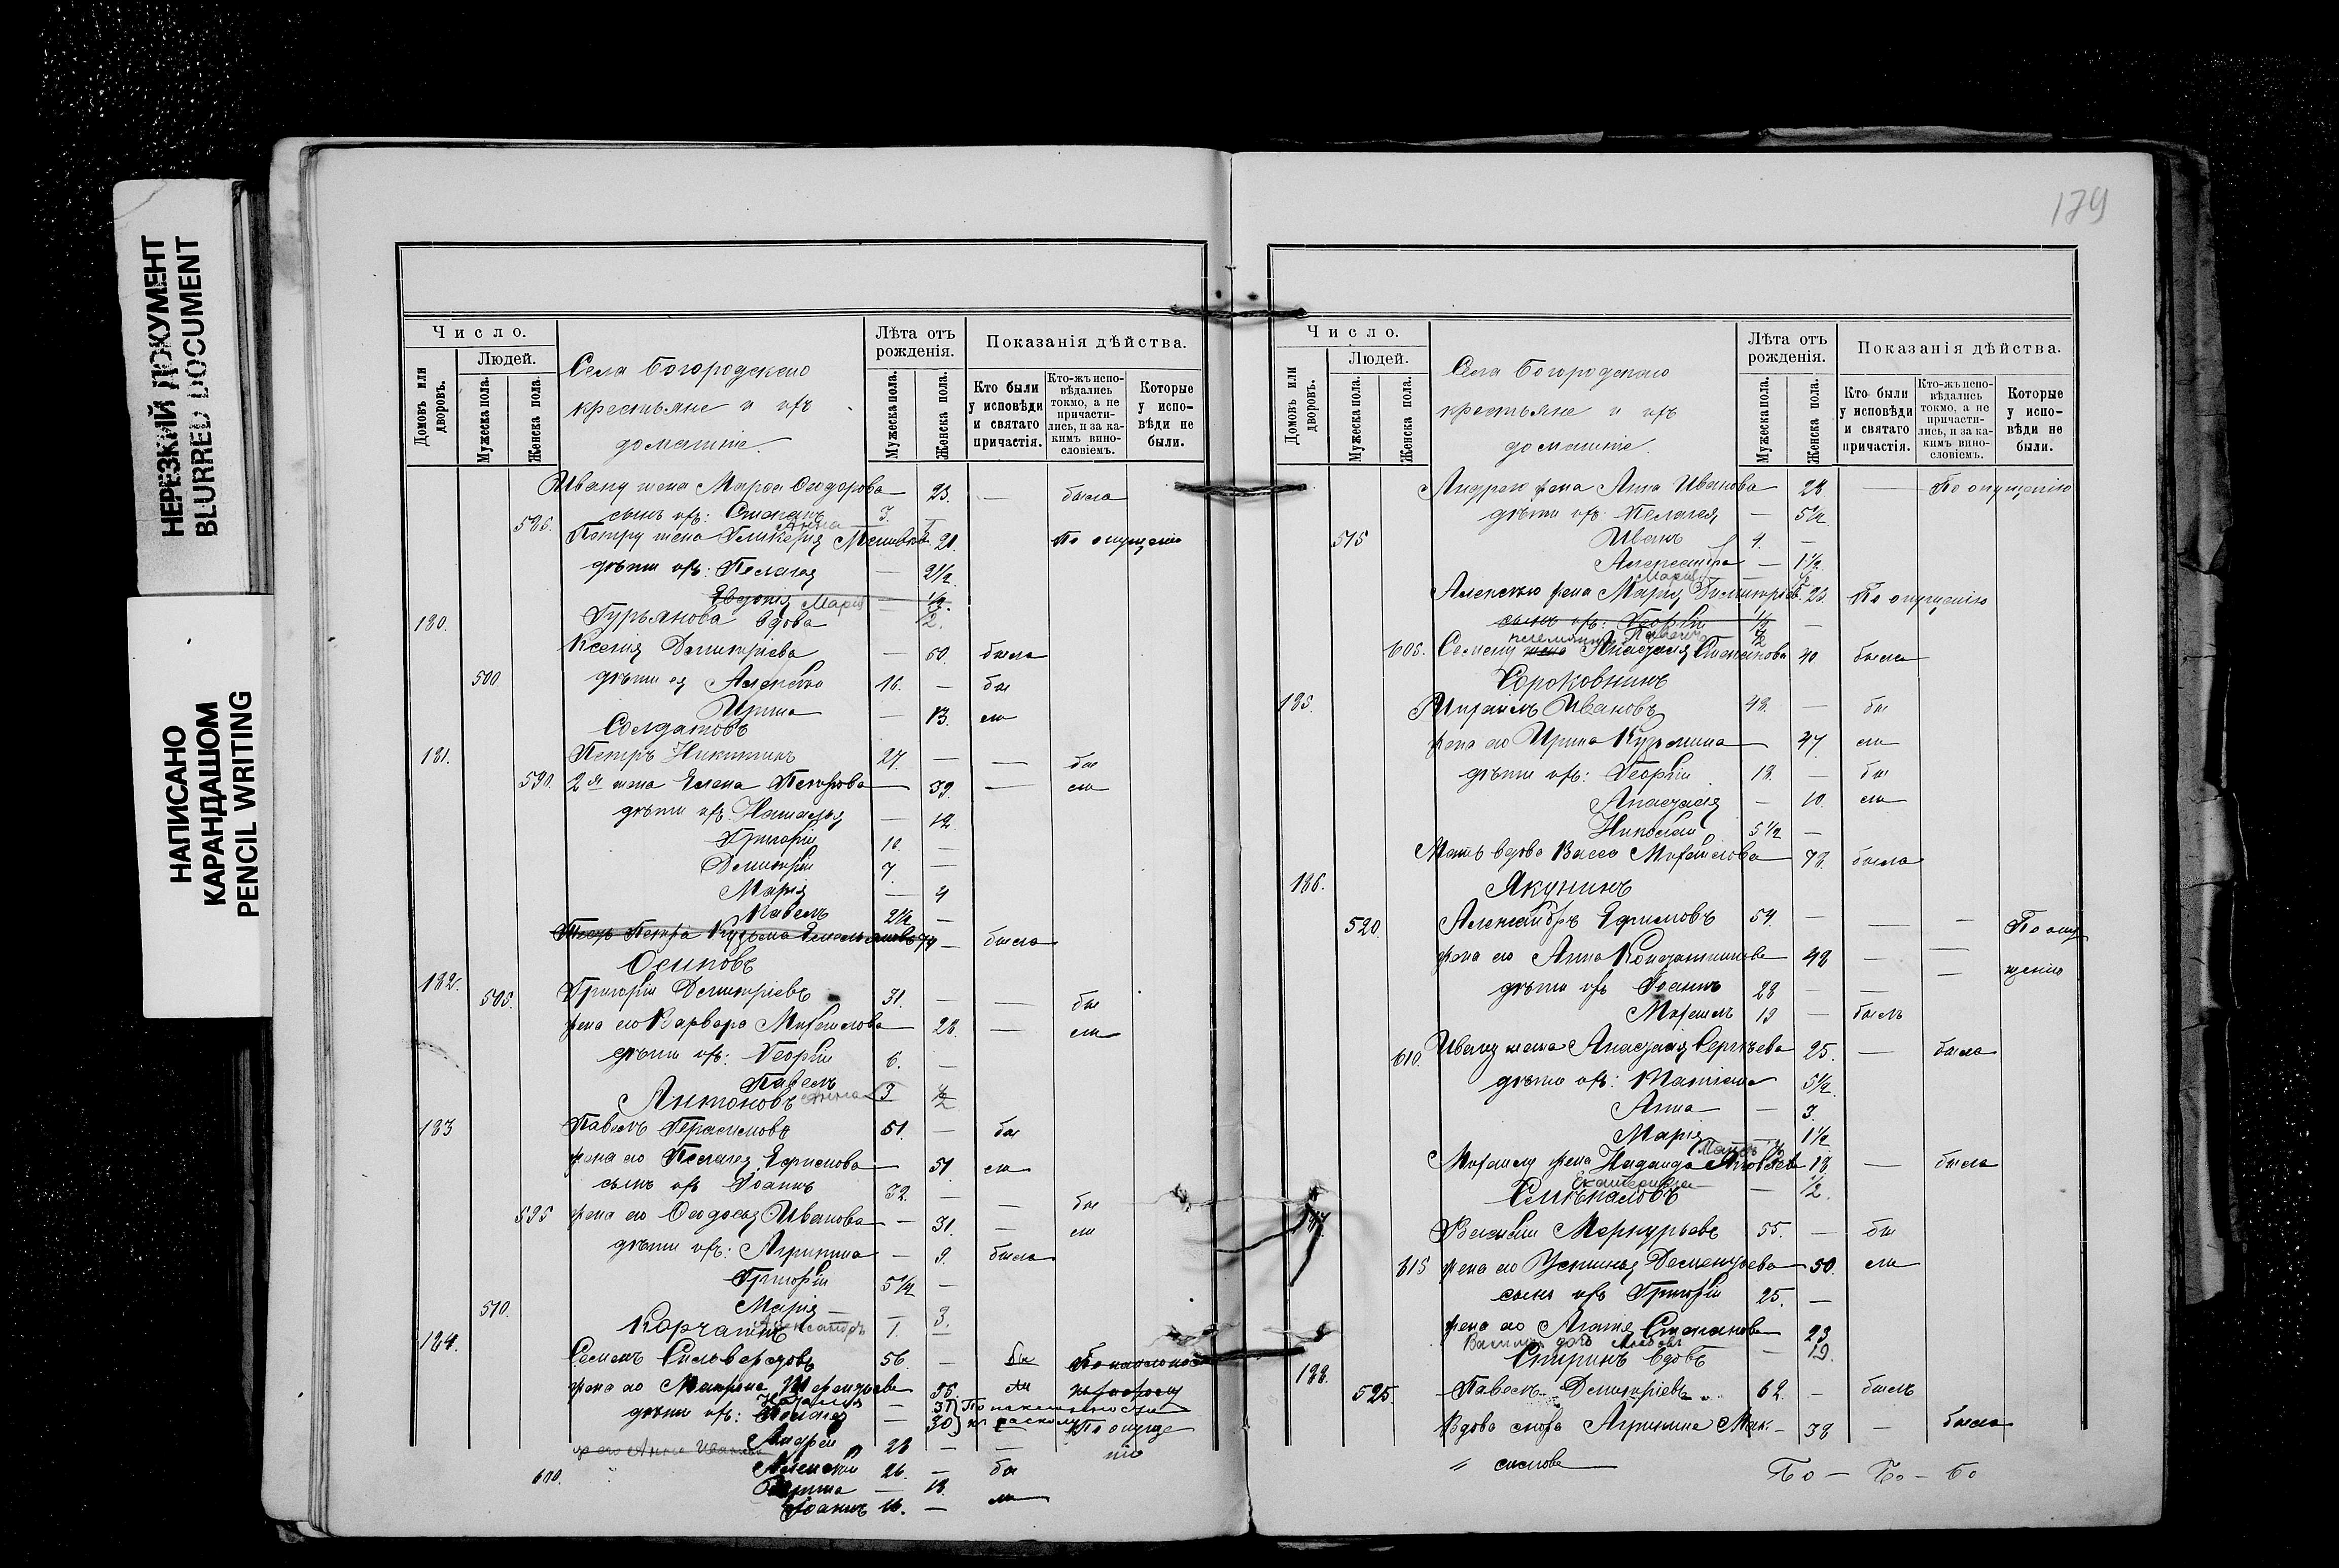 НЕРЕЗКИЙ ДОКУМЕНТ
BLURRED DOCUMENT
НАПИСАНО
КАРАНДАШОМ
PENCIL WRITING
Число.
Людей.
Домовъ или дворовъ.
Мужеска пола.
Женска пола.
Села Богородскаго
крестьяне и ихъ
домашніе.
Лѣта отъ рожденія.
Мужеска пола.
Женска пола.
Показанія дѣйства.
Кто были у исповѣди и святаго причастія.
Кто-жъ исповѣдались токмо, а не причастились, и за какимъ винословіемъ.
Которые у исповѣди не были.
Ивану жена Марѳа Ѳеодорова — 23. — была
585. сынъ ихъ: Степанъ 3. —
Анна
Петру жена Гликерія 21. По опущенію
дѣти ихъ: Пелагея — 2 1/2
Евдокія Марія — 1/2
180. Гурьянова вдова
Ксенія Димитріева — 60. была
500. дѣти ея Алексѣй 16. — бы
Ирина — 13. ли
Солдатовъ
181. Петръ Никитинъ 27. — — бы
590. 2я жена Елена Петрова — 39. — ли
дѣти ихъ: Наталья — 12
Григорій 10. —
Димитрій 7. —
Марія — 4
Павелъ 2 1/2 —
Петра Кузьма 74 — была
Осиповъ
182. 505. Григорій Димитріевъ 31. — — бы
жена его Варвара Михайлова — 28. — ли
дѣти ихъ: Георгій 6. —
Павелъ 3
Антоновъ Анна 1/2
183 Павелъ Герасимовъ 51. — бы
жена его Пелагея Ефимова — 51. ли
сынъ ихъ Іоаннъ 32. — — бы
595 жена его Ѳеодосья Иванова — 31. — ли
дѣти ихъ: Агрипина — 9. была
Григорій 5 1/2 —
510. Марія — 3.
Корчагинъ Александръ 1. —
184. Семенъ Сильверстовъ 56. — бы
жена его Матрона Терентьева — 55. ли
Наталія — 31 По наклонности
дѣти ихъ: Пелагея — 30 къ расколу По опуще
Андрей 28 — — нію
ж его Анна Иванова
600. Алексѣй 26. — бы
Ирина — 18.
Іоаннъ 16. — ли
179
Число.
Людей.
Домовъ или дворовъ.
Мужеска пола.
Женска пола.
Села Богородскаго
крестьяне и ихъ
домашніе.
Лѣта отъ рожденія.
Мужеска пола.
Женска пола.
Показанія дѣйства.
Кто были у исповѣди и святаго причастія.
Кто-жъ исповѣдались токмо, а не причастились, и за какимъ винословіемъ.
Которые у исповѣди не были.
Андрея жена Анна Иванова 28 — По опущенію
дѣти ихъ: Пелагея — 5 1/2
515 Иванъ 4. —
Александра — 1 1/2
Марія
Алексѣю жена Марія Димитріев. 23. По опущенію
сынъ ихъ: Георгій 1/2 —
605. Семену жена Анастасія Степанова 40 была
Сороковнинъ
185. Михаилъ Ивановъ 48. — бы
жена его Ирина Кузьмина — 47. ли
дѣти ихъ: Георгій 18. — бы
Анастасія — 10. ли
Николай 5 1/2 —
Мать вдова Васса Михайлова — 78. была
186. Якунинъ
520. Александръ Ефимовъ 54. — — — По опу
жена его Анна Константинова 48 — — щенію
дѣти ихъ Іоаннъ 28 — —
Михаилъ 19 — былъ
610. Ивану жена Анастасія Сергѣева 25. — была
дѣти ихъ: Татіана 5 1/2
Анна — 3.
Марія 1 1/2
Михаилу жена Надежда 18. — была
Екатерина — 1/2.
187. Василій Меркурьевъ 55. — бы
615 жена его Устинья Дементьева — 50. ли
сынъ ихъ Григорій 25. —
жена его Агафія Степанова — 23
19.
188. Спиринъ вдовъ
525. Павелъ Димитріевъ 62. — былъ
Вдова сноха Агрипина Мак. — 38 — была
" симова —